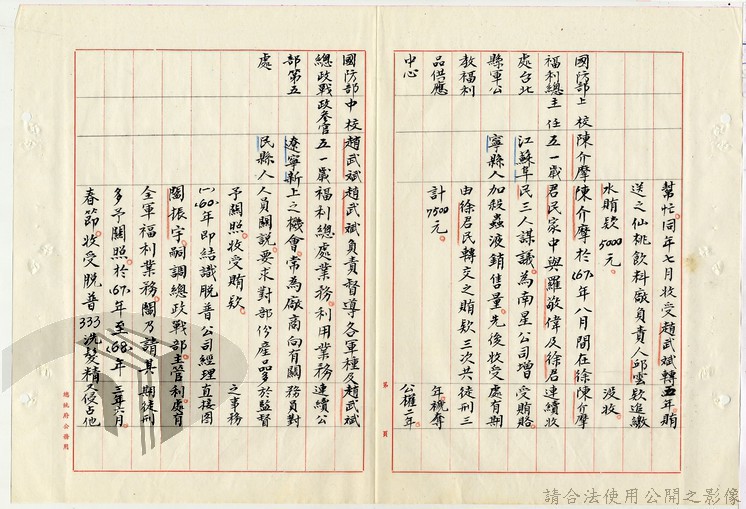 幫忙。同年七月收受趙武斌轉 五年賄
送之仙桃飲料廠負責人邱雲 款追繳
水賄款5000元。 沒收
國防部上校 陳介摩 陳介摩於(67)年八月間在徐 陳介摩
福利總主任 五一歲 君民家中與羅敬偉及徐君 連續收
處台北 江蘇阜 民三人謀議為南星公司增 受賄賂
縣軍公 寧縣人 加殺蟲液銷售量。先後收受 處有期
教福利 由徐君民轉交之賄款三次共 徒刑三
品供應 計7500元。 年褫奪
中心 公權二年。
第 頁
國防部中校 趙武斌 趙武斌負責督導各軍種及 趙武斌
總政戰政參官 五一歲 福利總處業務。利用業務 連續公
部第五 遼寧新 上之機會。常為廠商向有關 務員對
處 民縣人 人員關說。要求對部份產品多 於監督
予關照。收受賄款。 之事務
(一)(60)年即結識脫普公司經理 直接圖
振宇。嗣調總政戰部主管 利處有
全軍福利業務。乃請其 期徒刑
多予關照。於(67)年至(68)年 三年六月。
春節。收受脫普333洗髮精 又侵占他
總統府公務用
請合法使用公開之影像